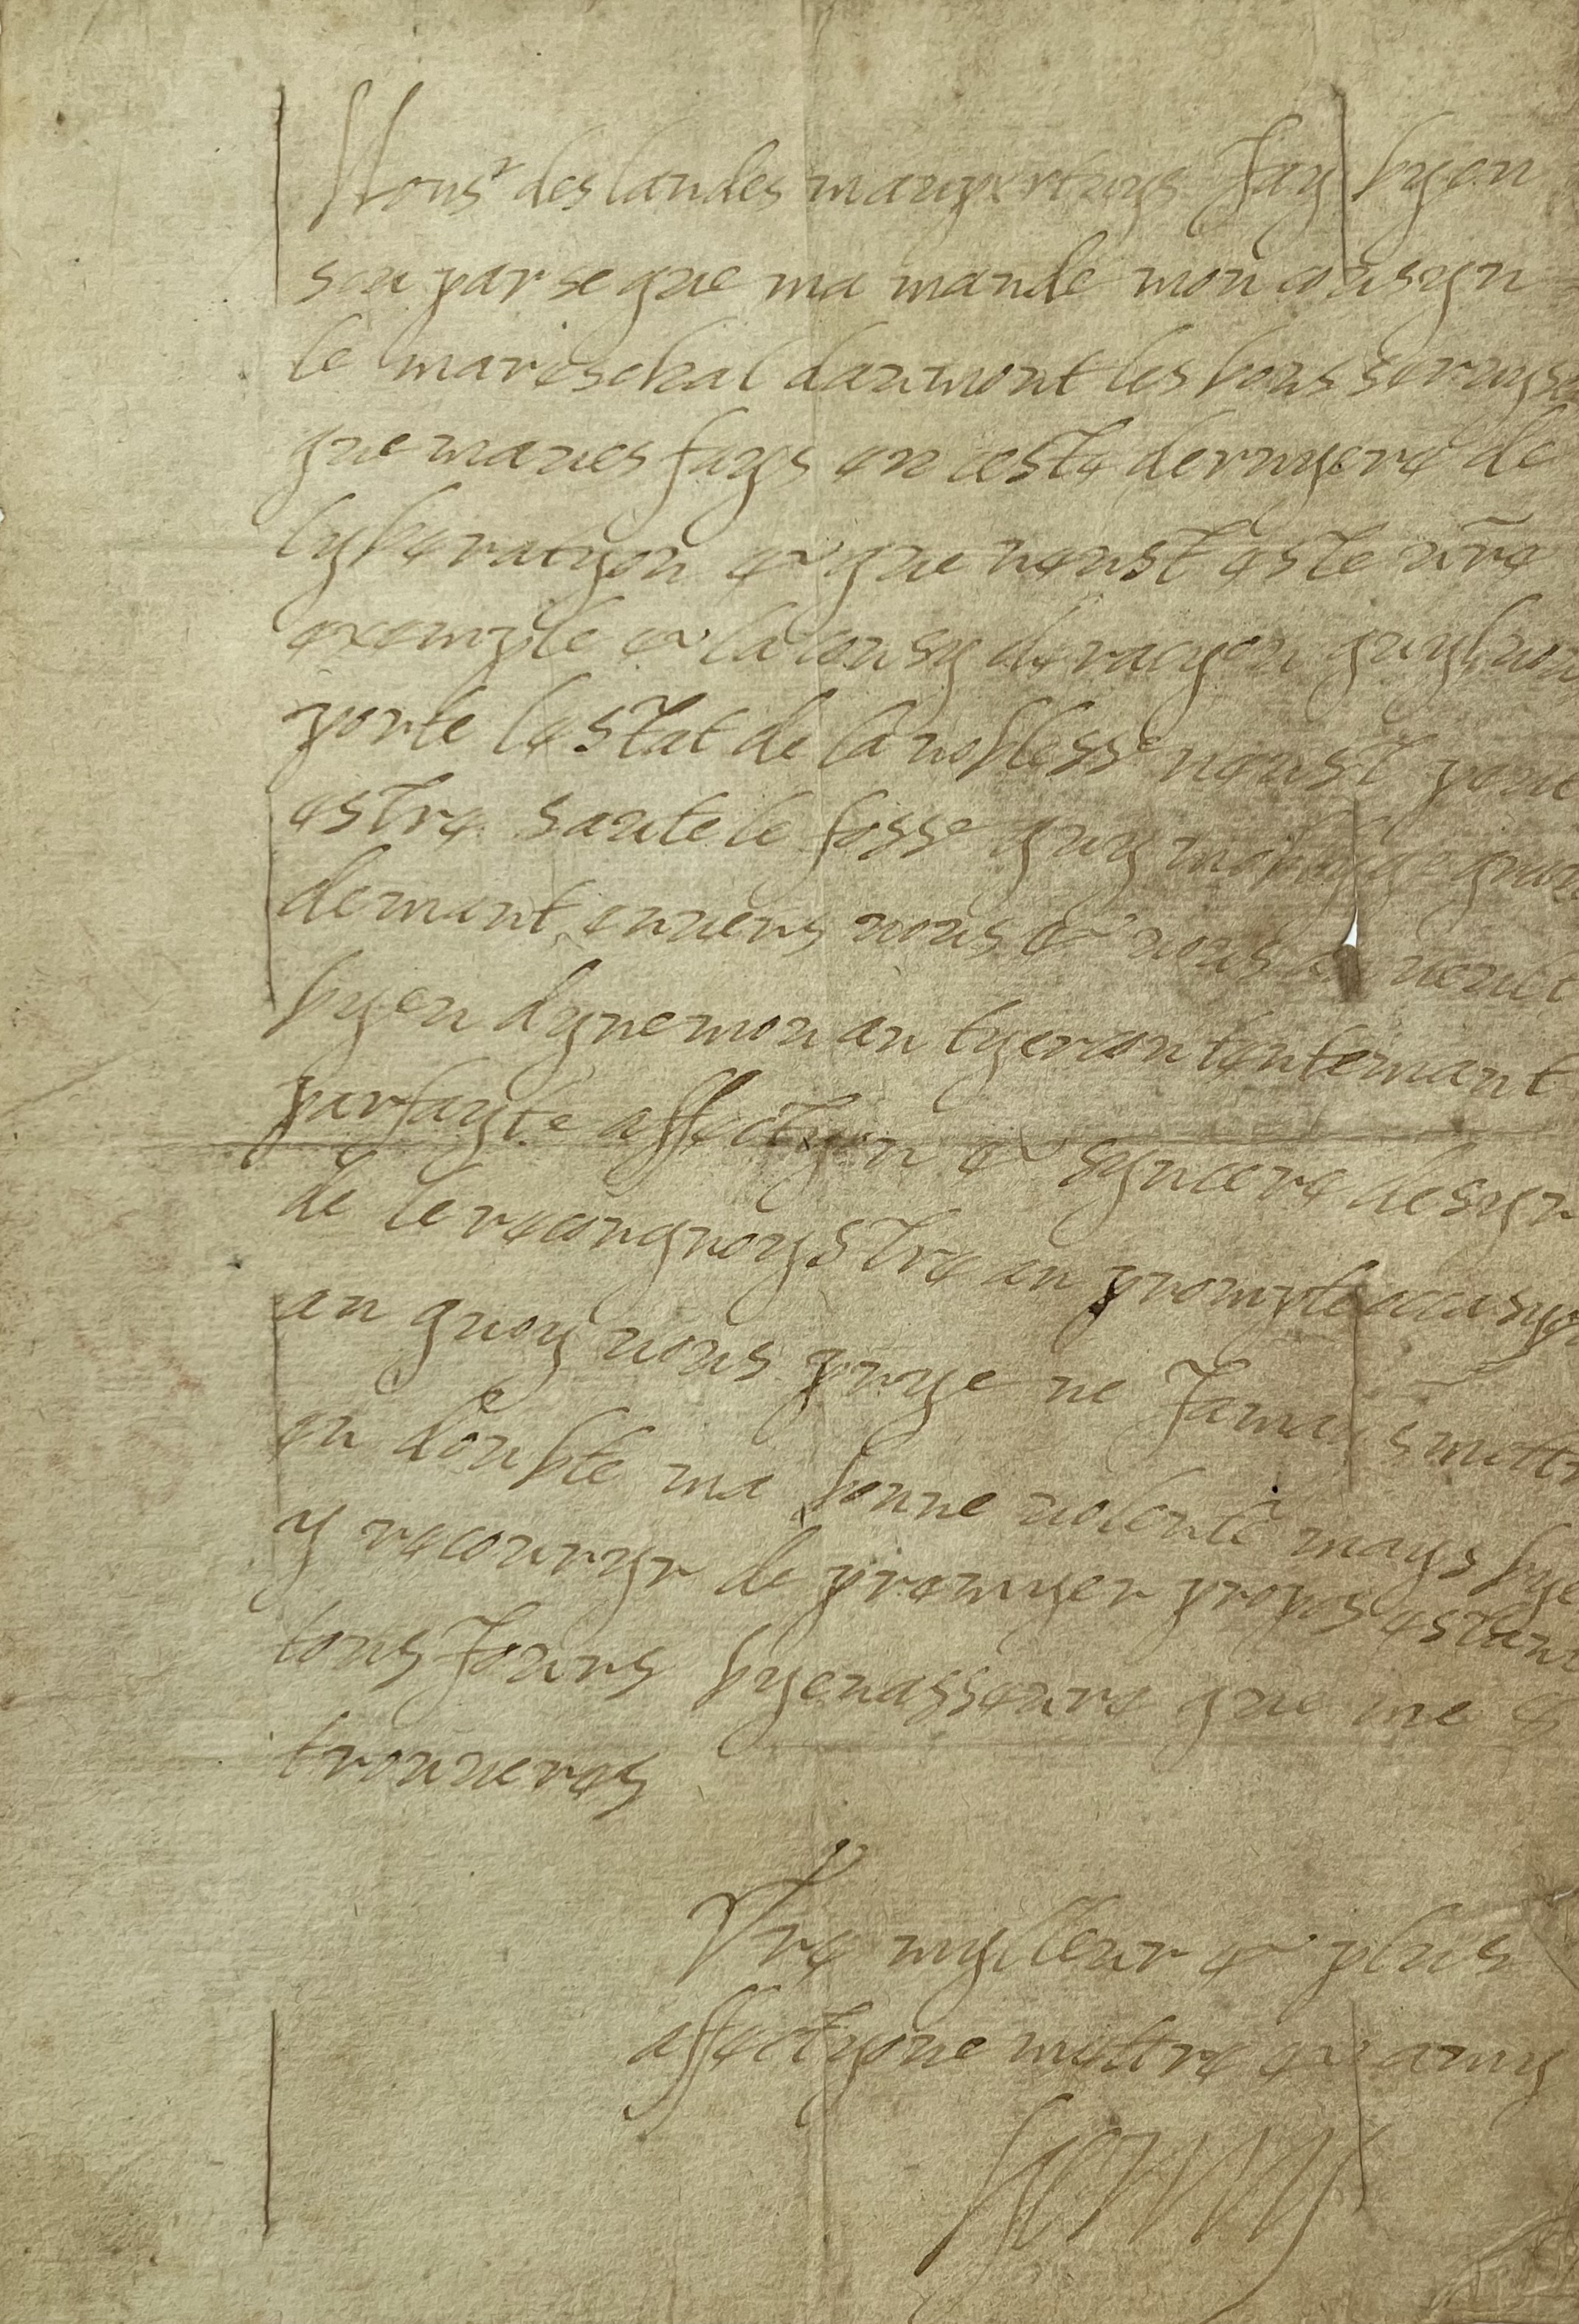 Mons^r des landes maupertuys Jay byen
seu par se que ma mandé mon cousyn
le mareschal daumont les bons servyse
que maves fays en ceste dernyere de
lyberacyon et que neust esté v̄re
exemple et la consyderacyon quyl
porte lestat de la noblesse neust pout
estre sauté le fosse quy moblyge gran
demant envers vous et vous
byen dyre mon antyer contentemant
parfayte affectyon et syncere desyr
de le recongnoystre an prompte occasyon
an quoy vous prye ne Jamays mettr
an doubte ma bonne volonté mays bye
y recouryr de premyer propos estant
tous Jours byen asseuré que me
trouveres
Vre mylleur et plus
affectyoné mettre et amy
HENRY